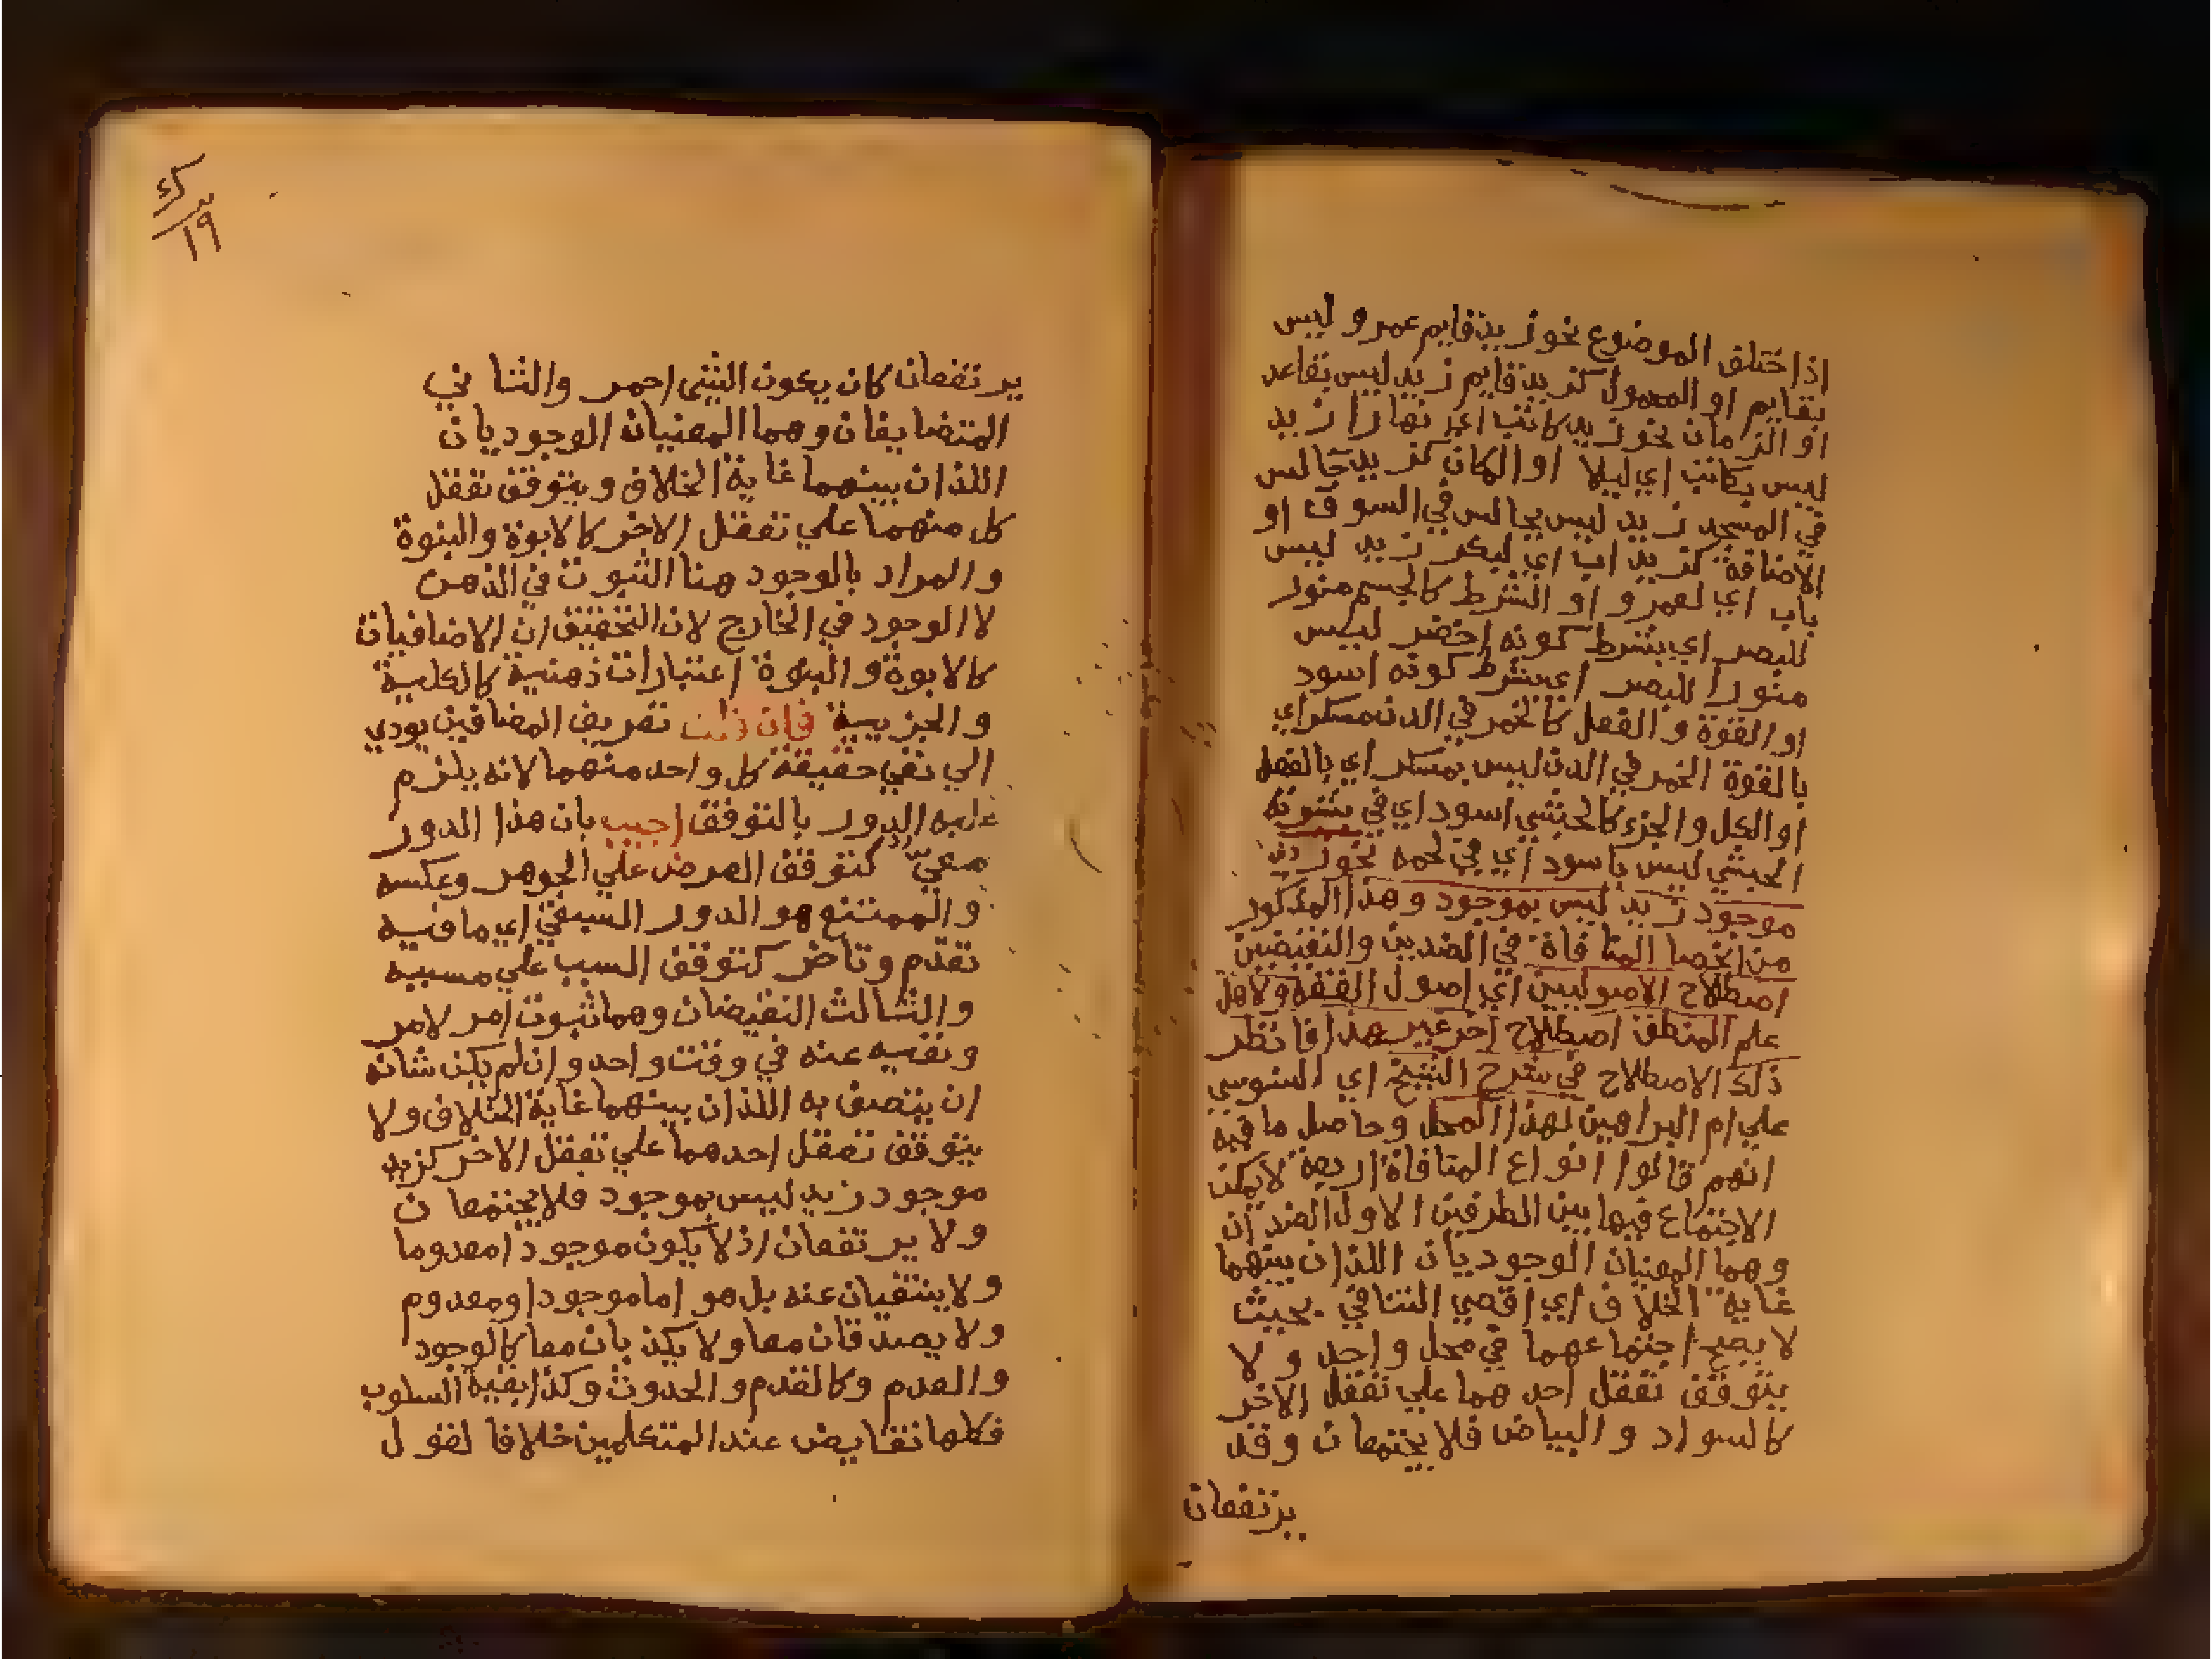 اذا ختلف الموضوع نحو زيد قايم عمرو ليس
بقايم او المحمول كزيد قايم زيد ليس بقاعد
او الزمان نحو زيد كاتب اي نهارا زيد
ليس بكاتب اي ليلا او المكان كزيد جالس
في المسجد زيد ليس بجالس في السوق او
الاضافة كزيد اب اي لبكر زيد ليس
باب اي لعمرو او الشرط كالجسم منور
للبصر اي بشرط كونه اخضر ليس
منورا للبصر اي بشرط كونه اسود
او القوة و الفعل كالخمر في الدن مسكراي
بالقوة الخمر في الدن ليس بمسكر اي بالفعل
او الكل و الجزء كالحبشي اسود اي في بشرته
الحبشي ليس باسود اي في لحمه نحو زيد
موجود زيد ليس بموجود وهذا المذكور
من انحصا المنافاة في الضدين والنقيضين
اصطلاح الاصوليين اي اصول الفقه ولاهل
علم المنطق اصطلاح اخر غير هذا فانظر
ذلك الاصطلاح في شرح الشيخ اي السنوسي
علي ام البراهين لهذا المحل وحاصل ما فيه
انهم قالوا انواع المنافاة اربعة لا يمكن
الاجتماع فيها بين الطرفين الاول الضدان
وهما المعنيان الوجوديان اللذان بينهما
غاية الخلاف اي اقصي التنافي بحيث
لا يصح اجتماعهما في محل واحد ولا
يتوقف تعقل احدهما علي تعقل الاخر
كالسواد و البياض فلا يجتمعان وقد
يرتفعان
١٩
يرتفعان كان يكون الشي احمر والثاني
المتضايفان وهما المعنيان الوجوديان
اللذان بينهما غاية الخلاف ويتوقف تعقل
كل منهما علي تعقل الاخر كالابوة والبنوة
والمراد بالوجود هنا الثبوت في الذهن
لا الوجود في الخارج لان التحقيق ان الاضافيات
كالابوة والبنوة اعتبارات ذهنية كالكلية
والجزيية فان قلت تعريف المضافين يودي
الي نفي حقيقة كل واحد منهما لانه يلزم
عليه الدور بالتوقف اجيب بان هذا الدور
معيّ كتوقف العرض علي الجوهر وعكسه
والممتنع هو الدور السبقي اي ما فيه
تقدم وتاخر كتوقف السبب علي مسببه
والثالث النقيضان وهما ثبوت امر لامر
ونفيه عنه في وقت واحد و ان لم يكن شانه
ان يتصف به اللذان بينهما غاية الخلاف ولا
يتوقف تعقل احدهما علي تعقل الاخر كزيد
موجود زيد ليس بموجود فلا يجتمعان
ولا يرتفعان اذ لا يكون موجودا معدوما
ولا ينتفيان عنه بل هو اما موجود او معدوم
ولا يصدقان معا ولا يكذبان معا كالوجود
والعدم وكالقدم والحدوث وكذا بقية السلوب
فكلها نقايض عند المتكلمين خلافا لقول